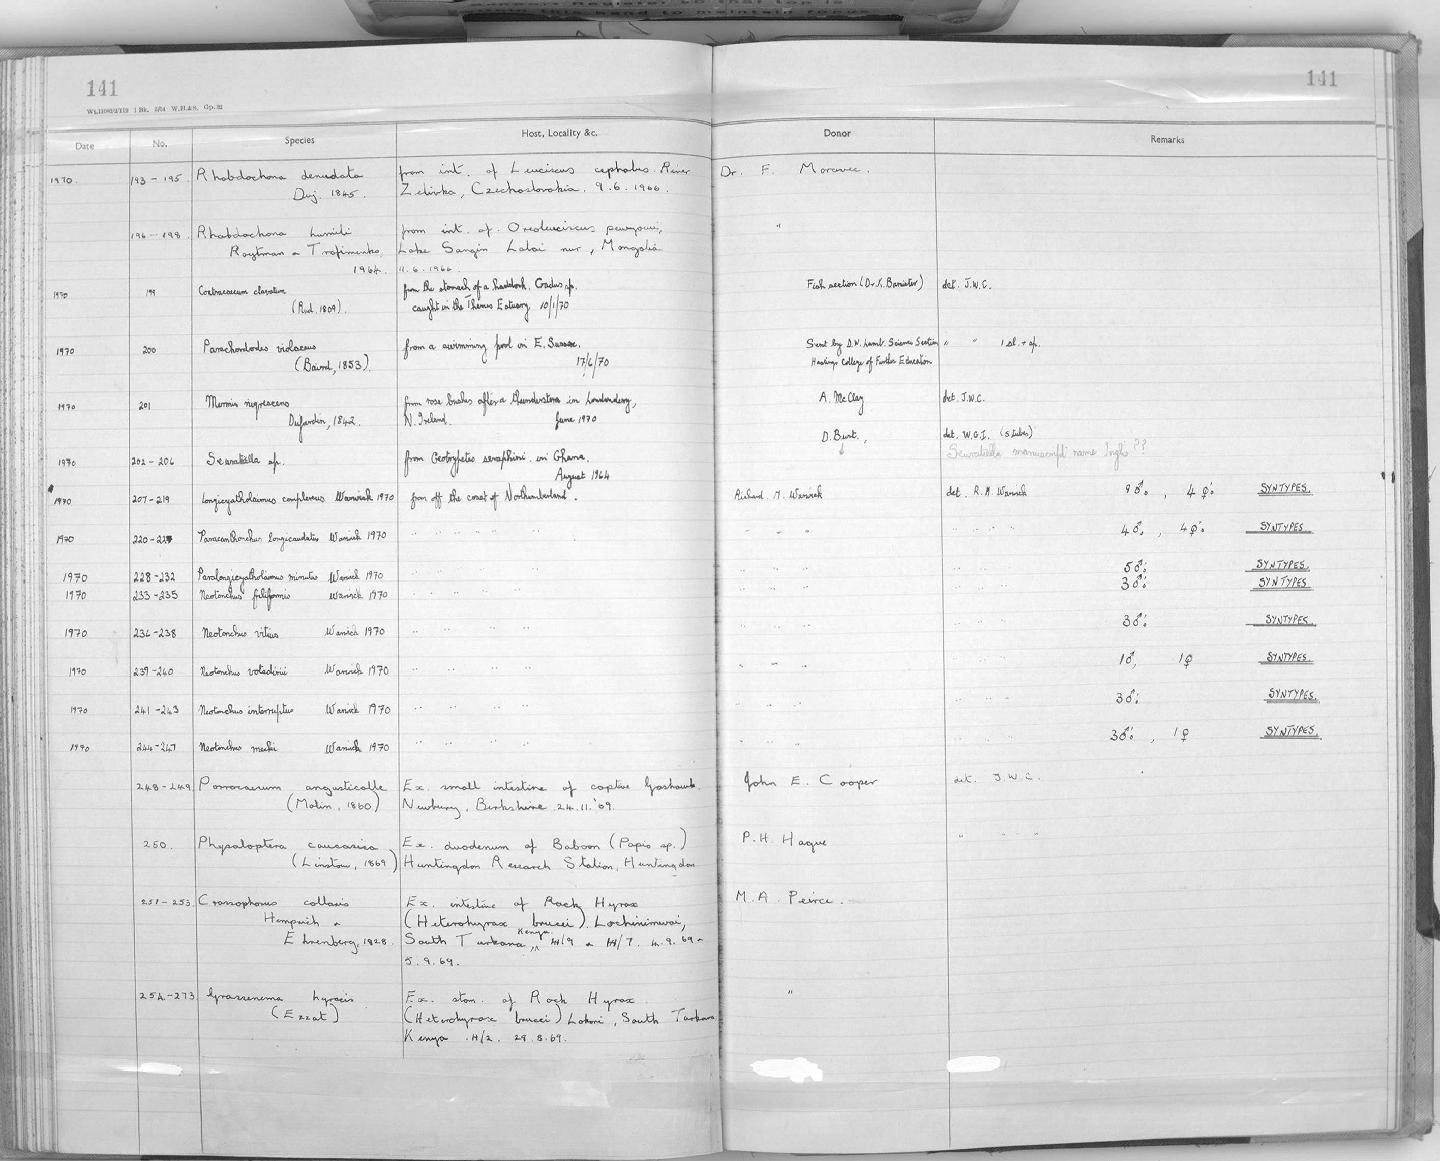 141
141
Date No. Species Host, Locality &c. Donor Remarks
1970. 193 - 195. Rhabdochona denudata from int. of Leuciscus cephalus. River Dr. F. Moravec.
Duj. 1845. Zelivka, Czechoslovakia. 9.6.1966.
196 - 198. Rhabdochona from int. of. Oreoleuciscus "
Roytman & Trofimenko. Lake Sangin Dalai nur, Mongolia
1964. 11.6.1966.
1970 199 Contracaecum clavatum from the stomach of a haddock. Gadus sp. Fish section (Dr. K. Banister) det. J.W.C.
(Rud. 1809). caught in the Thames Estuary 10/1/70
1970 200 Parachordodes violaceus from a swimming pool in E. Sussex. Sent by D.W. Lamb. Science Section " " 1 sl. + sp.
(Baird, 1853). 17/6/70 Hastings College of Further Education
1970 201 Mermis nigrescens from rose bushes after a thunderstorm in Londonderry, A. McClay det. J.W.C.
Dujardin, 1842. N. Ireland. June 1970
D. Burt., det. W.G.I. (5 tubes)
1970 202 - 206 Seuratiella sp. from Geotrypetes seraphini. in Ghana. Seuratiella manuscript name Inglis??
August 1964
1970 207 - 219 Longicyatholaimus complexus Warwick 1970 from off the coast of Northumberland. Richard. M. Warwick det. R.M. Warwick 9♂, 4♀ SYNTYPES.
1970 220 - 227 Paracanthonchus longicaudatus Warwick 1970 " " " " " " " " " " 4♂, 4♀ SYNTYPES.
1970 228 - 232 Paralongicyatholaimus minutus Warwick 1970 " " " " " " " " 5♂ SYNTYPES.
1970 233 - 235 Neotonchus filiformis Warwick 1970 " " " " " " 3♂ SYNTYPES
1970 236 - 238 Neotonchus vitius Warwick 1970 " " " " " " " " 3♂ SYNTYPES.
1970 239 - 240 Neotonchus votadinii Warwick 1970 " " " " " " " " 1♂, 1♀ SYNTYPES.
1970 241 - 243 Neotonchus interruptus Warwick 1970 " " " " " " " " " 3♂ SYNTYPES.
1970 244 - 247 Neotonchus meeki Warwick 1970 " " " " " " " " " 3♂, 1♀ SYNTYPES.
248 - 249. Porrocaecum angusticolle Ex. small intestine of captive Goshawk. John E. Cooper det. J.W.C.
(Molin, 1860) Newbury, Berkshire. 24.11.'69.
250. Physaloptera caucasica Ex. duodenum of Baboon (Papio sp.) P.H. Hague " " "
(Linstow, 1869) Huntingdon Research Station, Huntingdon
251 - 253. Crossophorus collaris Ex. intestine of Rock Hyrax M.A. Peirce.
Hemprich & (Heterohyrax brucei).
Ehrenberg, 1828. South Turkana, Kenya. H/9 & H/7. 4.9.69 -
5.9.69.
254 - 273. Grassenema hyracis Ex. stom. of Rock Hyrax "
(Ezzat) (Heterohyrax brucei) Lokori, South Turkana
Kenya. H/2. 28.8.69.